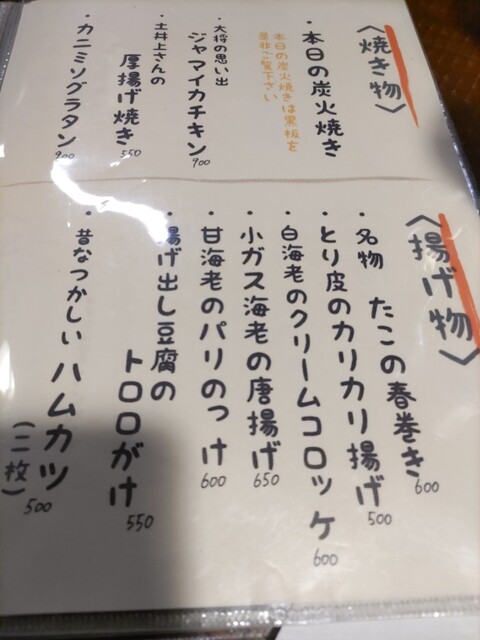 〈焼き物〉
・本日の炭火焼き
本日の炭火焼きは黒板を
是非ご覧下さい
・大将の思い出
ジャマイカチキン
900
・土井上さんの
厚揚げ焼き
550
・カニミソグラタン
900
〈揚げ物〉
・名物 たこの春巻き
600
・とり皮のカリカリ揚げ
500
・白海老のクリームコロッケ
600
・小ガス海老の唐揚げ
650
・甘海老のパリのっけ
600
・揚げ出し豆腐の
トロロがけ
550
・昔なつかしいハムカツ
(二枚)
500